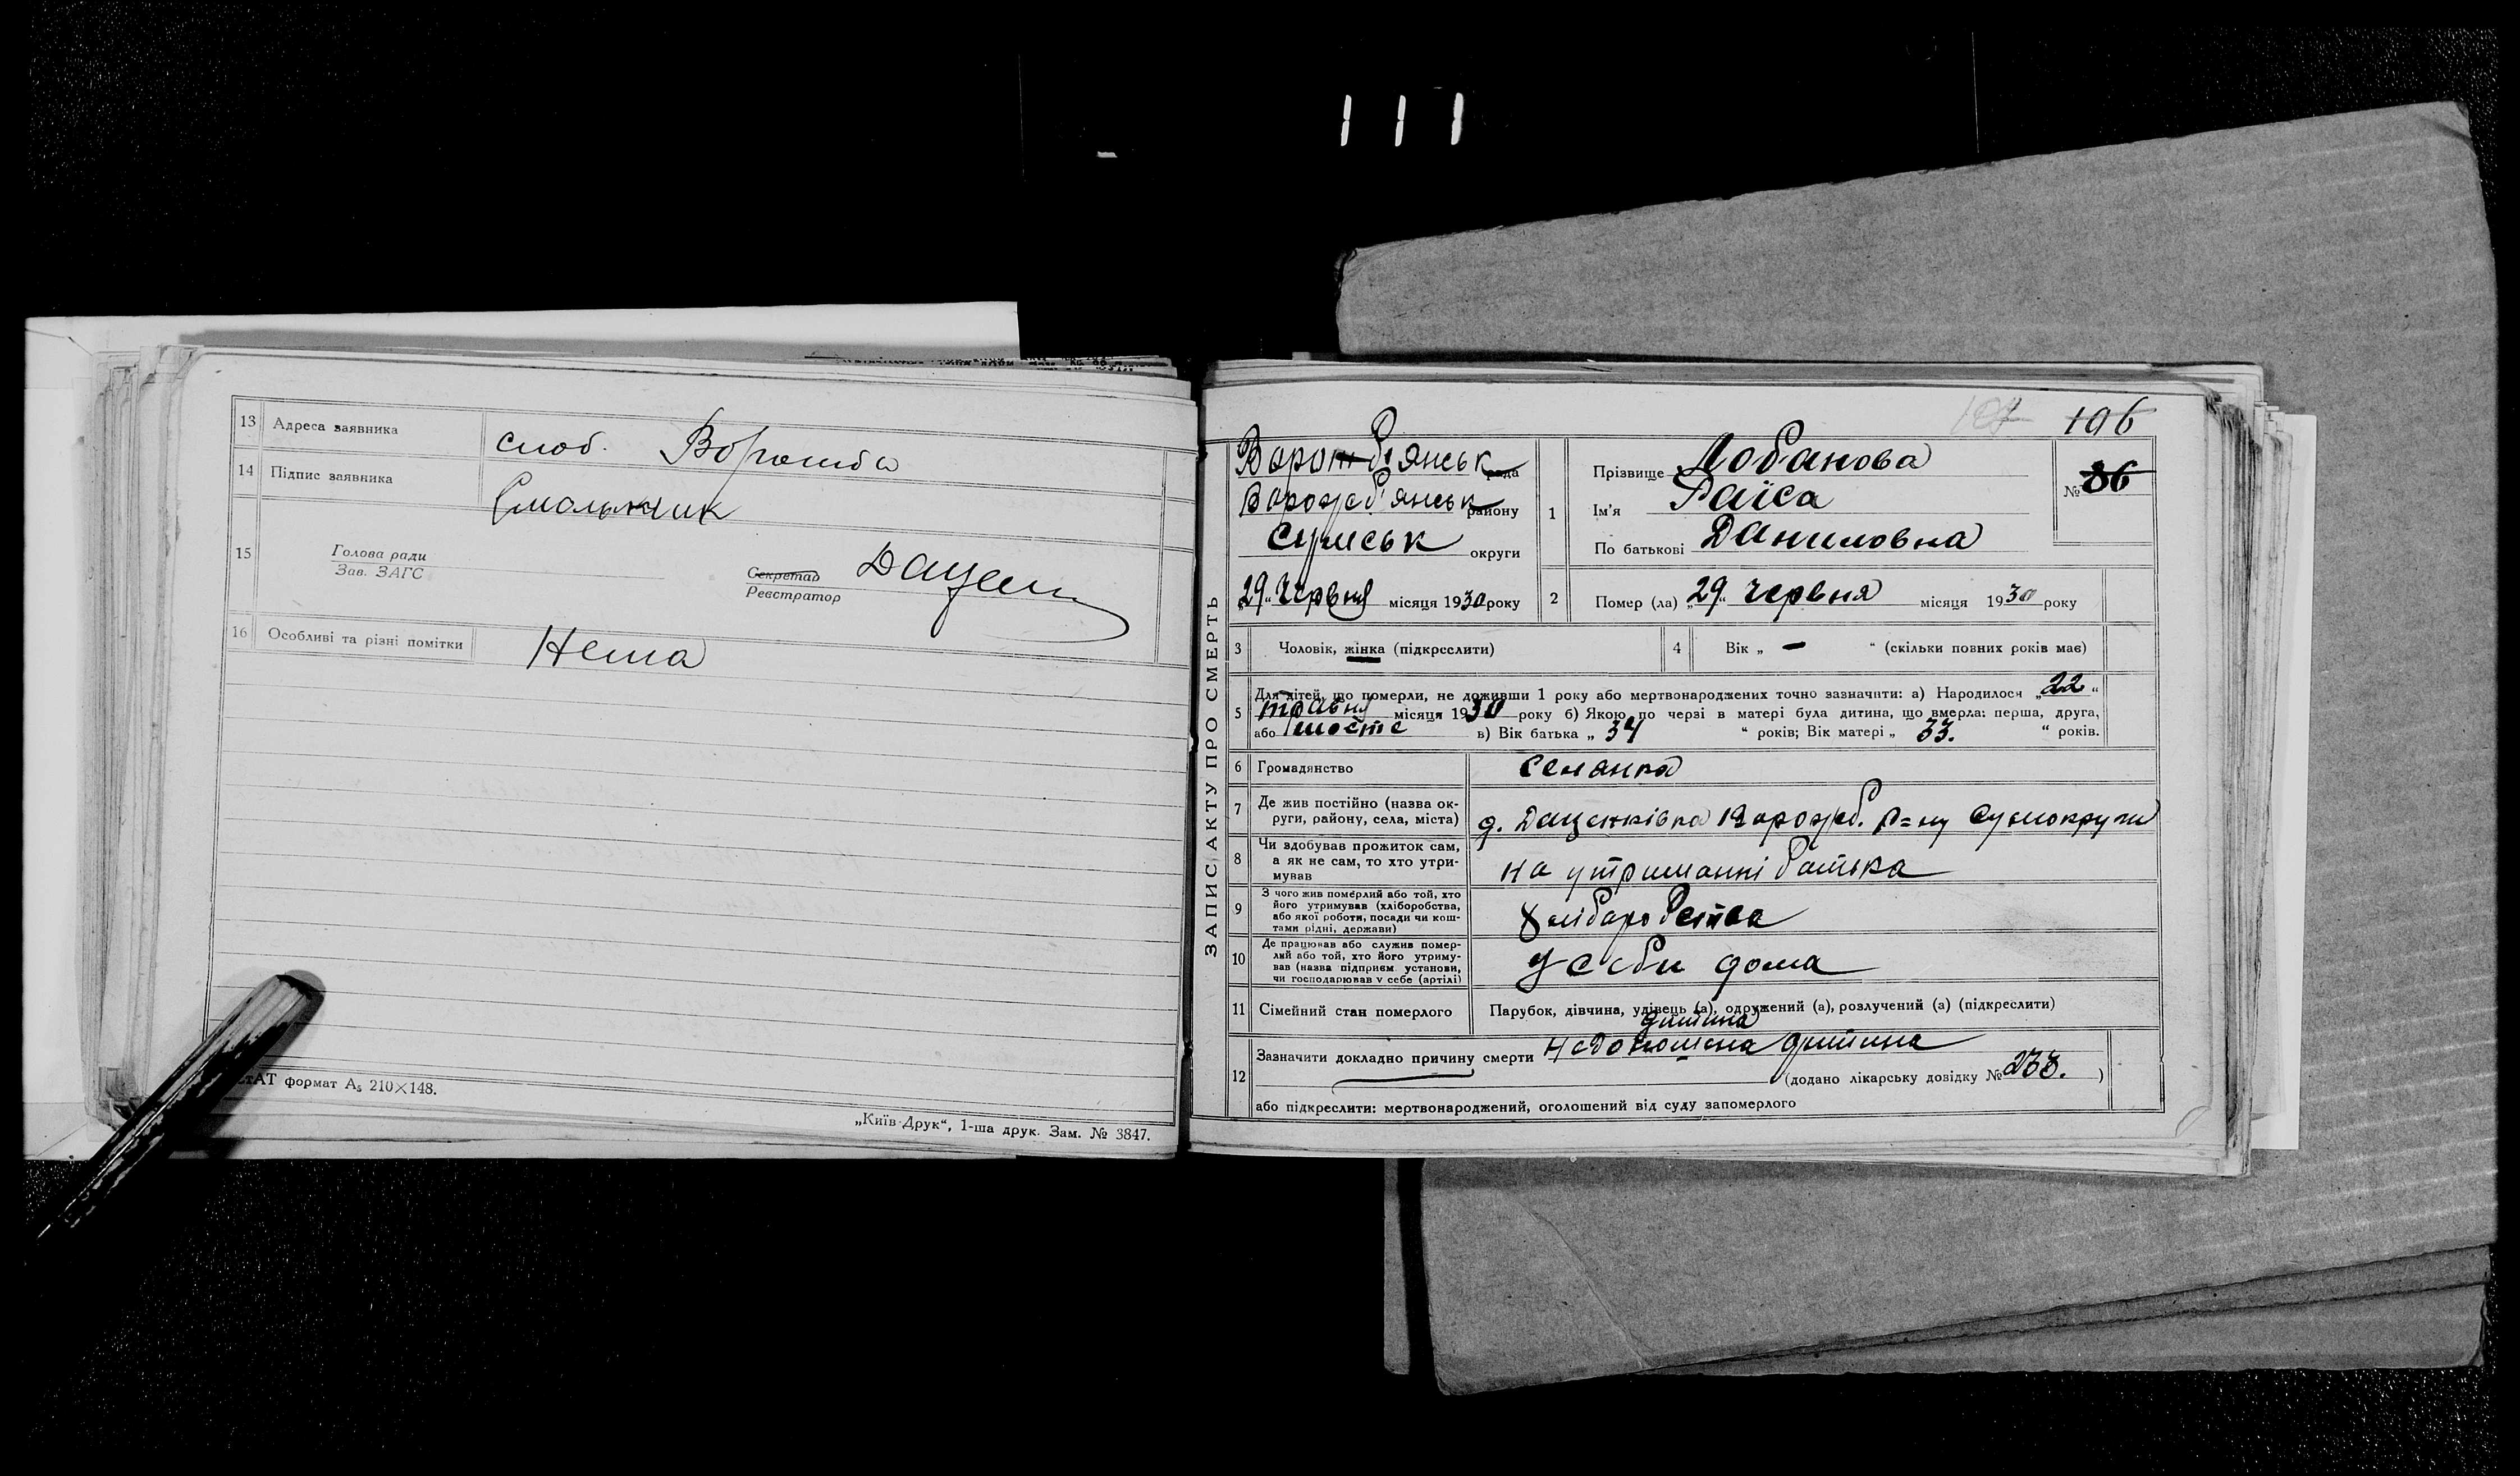 111
13 Адреса заявника слоб. Ворожба
14 Підпис заявника Смольяник
15 Голова ради
Зав. ЗАГС
Секретар
Реєстратор Даценк
16 Особливі та різні помітки Нема
формат А5 210×148.
„Київ-Друк“, 1-ша друк. Зам. № 3847.
106
ЗАПИС АКТУ ПРО СМЕРТЬ
Ворожб'янськ рада
Ворожб'янськ району
Сумськ округи
„29“ Червня місяця 1930 року
1 Прізвище Лобанова
Ім'я Раїса
По батькові Даниловна
№ 86
2 Помер (ла) „29“ червня місяця 1930 року
3 Чоловік, жінка (підкреслити)
4 Вік „ — “ (скільки повних років має)
5 Для дітей, що померли, не доживши 1 року або мертвонароджених точно зазначити: а) Народилося „22“
травня місяця 1930 року б) Якою по черзі в матері була дитина, що вмерла: перша, друга,
або шосте в) Вік батька „ 34 “ років; Вік матері „ 33. “ років.
6 Громадянство селянка
7 Де жив постійно (назва ок-
руги, району, села, міста) д. Даценківка Ворожб. р=ну Сумокруги
8 Чи здобував прожиток сам,
а як не сам, то хто утри-
мував на утриманні батька
9 З чого жив померлий або той, хто
його утримував (хліборобства,
або якої роботи, посади чи кош-
тами рідні, держави) хліборобства
10 Де працював або служив помер-
лий або той, хто його утриму-
вав (назва підприєм. установи,
чи господарював у себе (артілі) У себи дома
11 Сімейний стан померлого Парубок, дівчина, удівець (а), одружений (а), розлучений (а) (підкреслити)
дитина
12 Зазначити докладно причину смерти Недоношена дитина
(додано лікарську довідку № 233. )
або підкреслити: мертвонароджений, оголошений від суду запомерлого